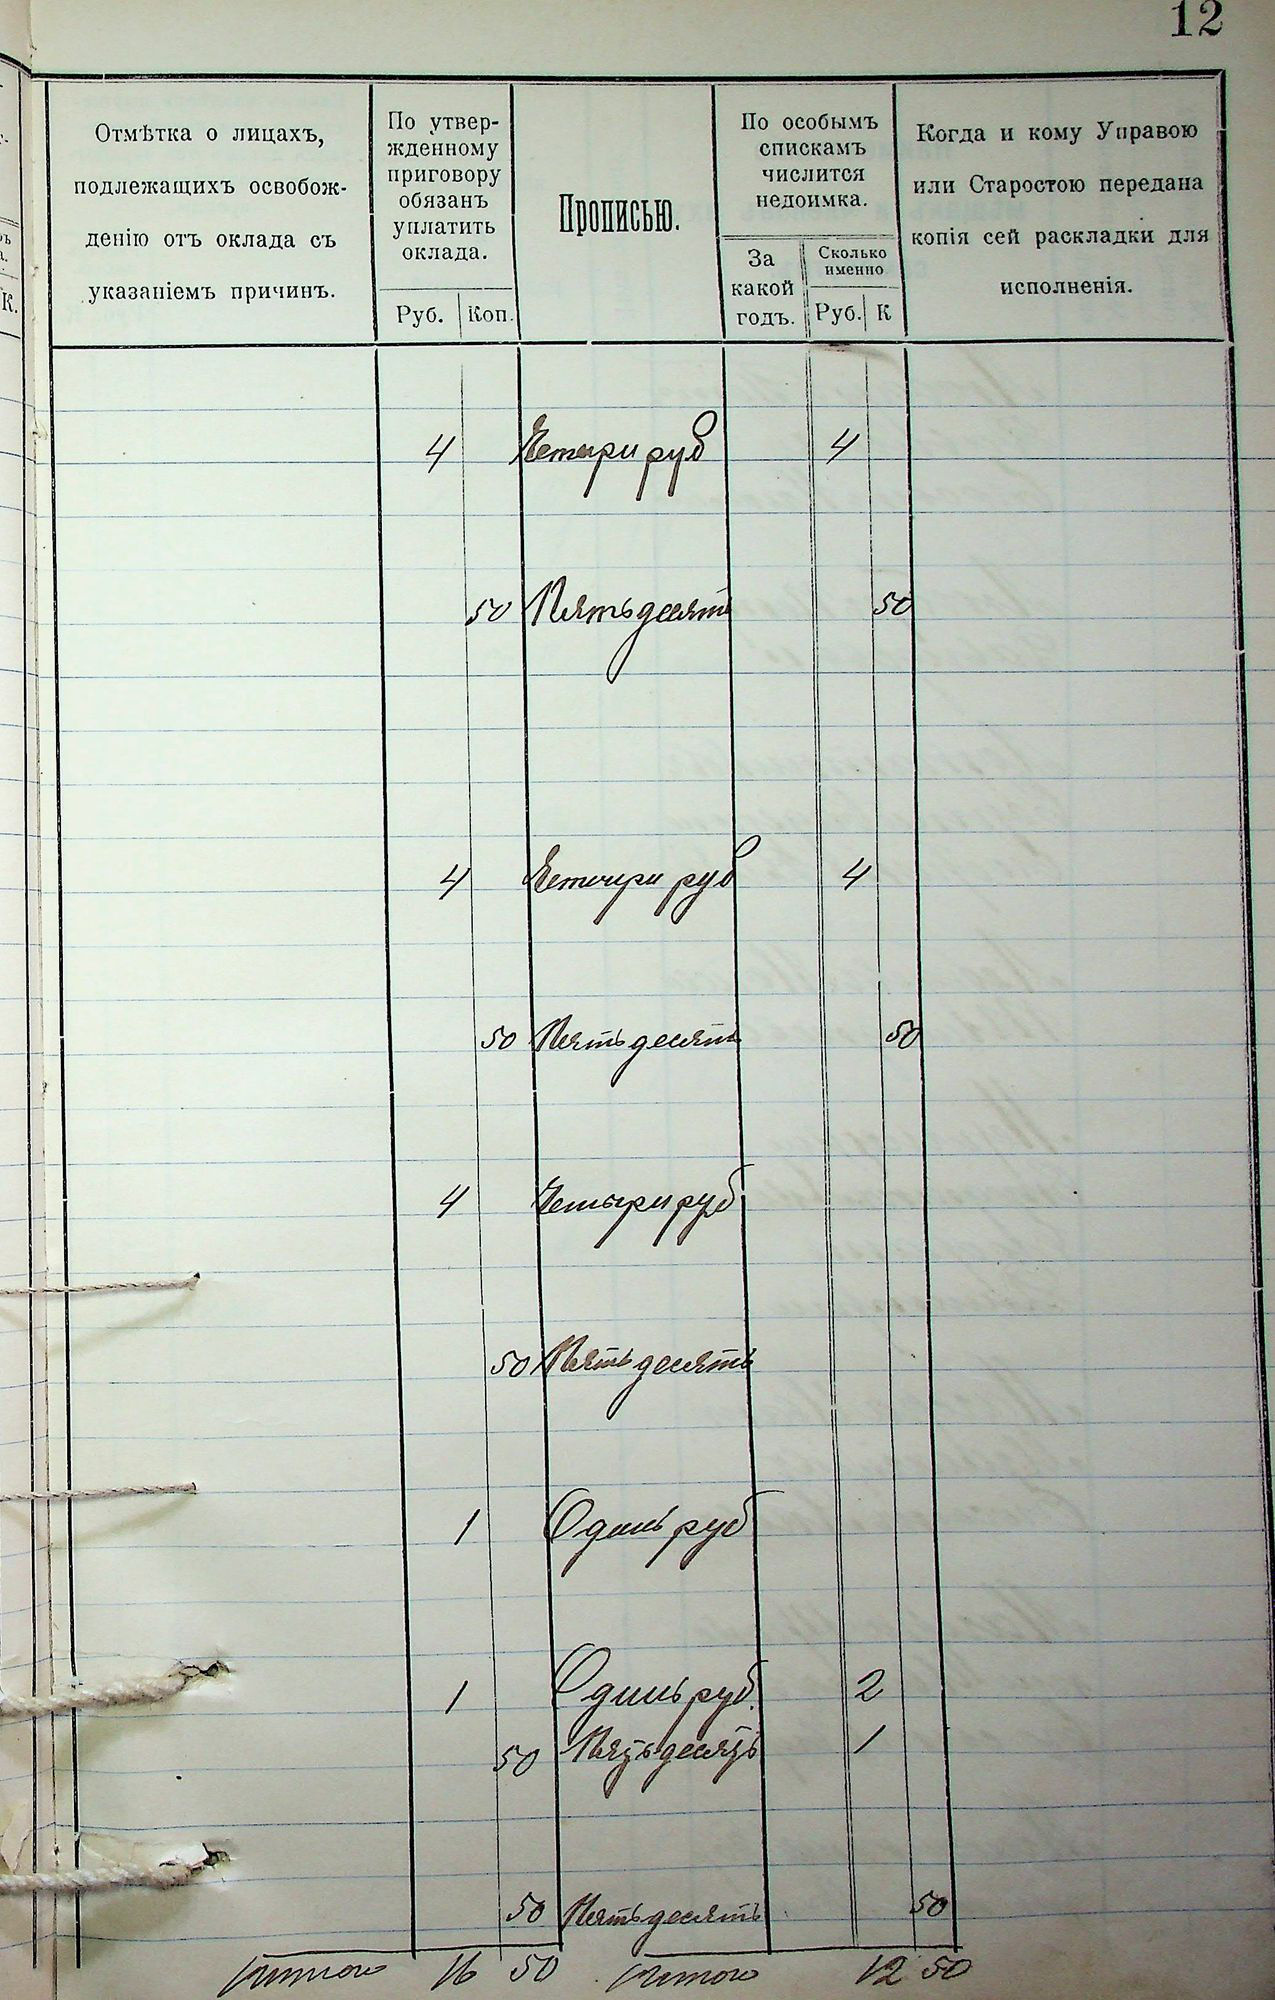 12
Отмѣтка о лицахъ,
подлежащихъ освобож-
денію отъ оклада съ
указаніемъ причинъ.
По утвер-
жденному
приговору
обязанъ
уплатить
оклада.
Руб. Коп.
Прописью.
По особымъ
спискамъ
числится
недоимка.
За
какой
годъ.
Сколько
именно
Руб. К
Когда и кому Управою
или Старостою передана
копія сей раскладки для
исполненія.
К.
4 Четыри руб 4
50 Пятьдесятъ 50
4 Четыри руб 4
50 Пятьдесятъ 50
4 Четыри руб
50 Пятьдесятъ
1 Одинъ руб
1 Одинъ руб. 2
50 Пятьдесятъ 1
50 Пятьдесятъ 50
Итого 16 50 Итого 12 50